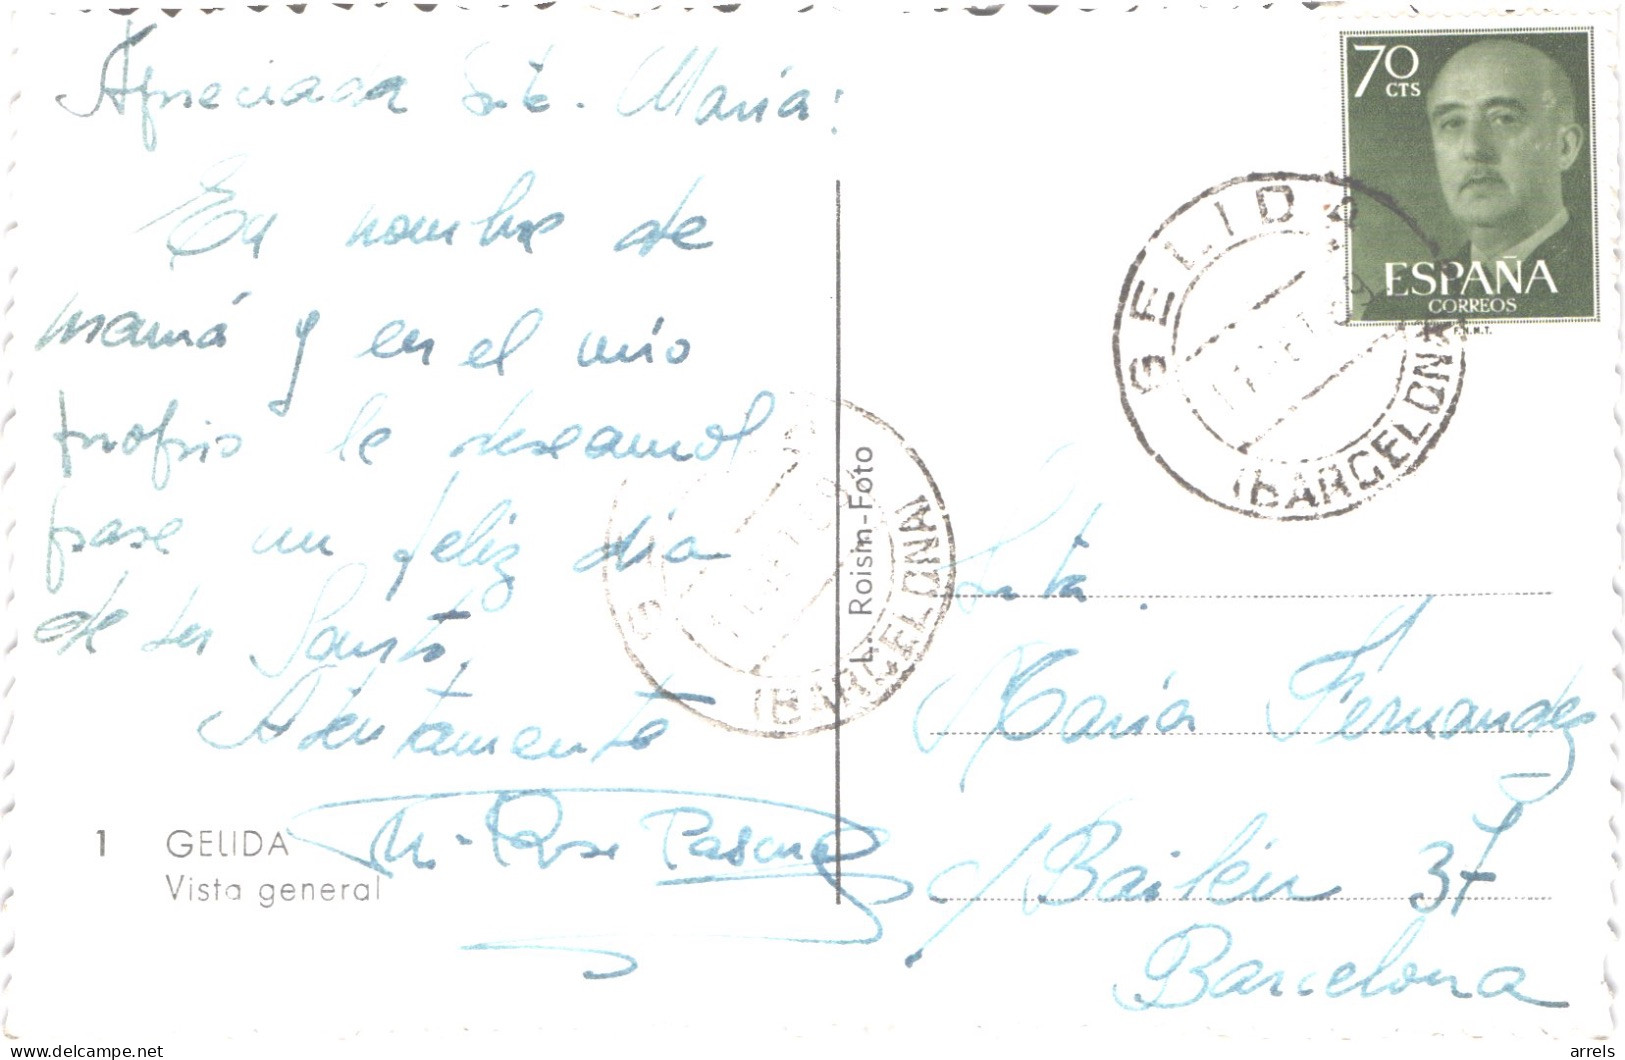 Apreciada Srta. María:
En nombre de
mamá y en el mío
propio le deseamos
pase un feliz día
de su Santo.
Atentamente
Mª Rosa Pascual
1 GELIDA
Vista general
L. Roisin-Foto
70
CTS
ESPAÑA
CORREOS
F.N.M.T.
GELIDA
(BARCELONA)
(BARCELONA)
Srta.
María Fernandez
c/ Bailén 37
Barcelona
delcampe.net
arrels